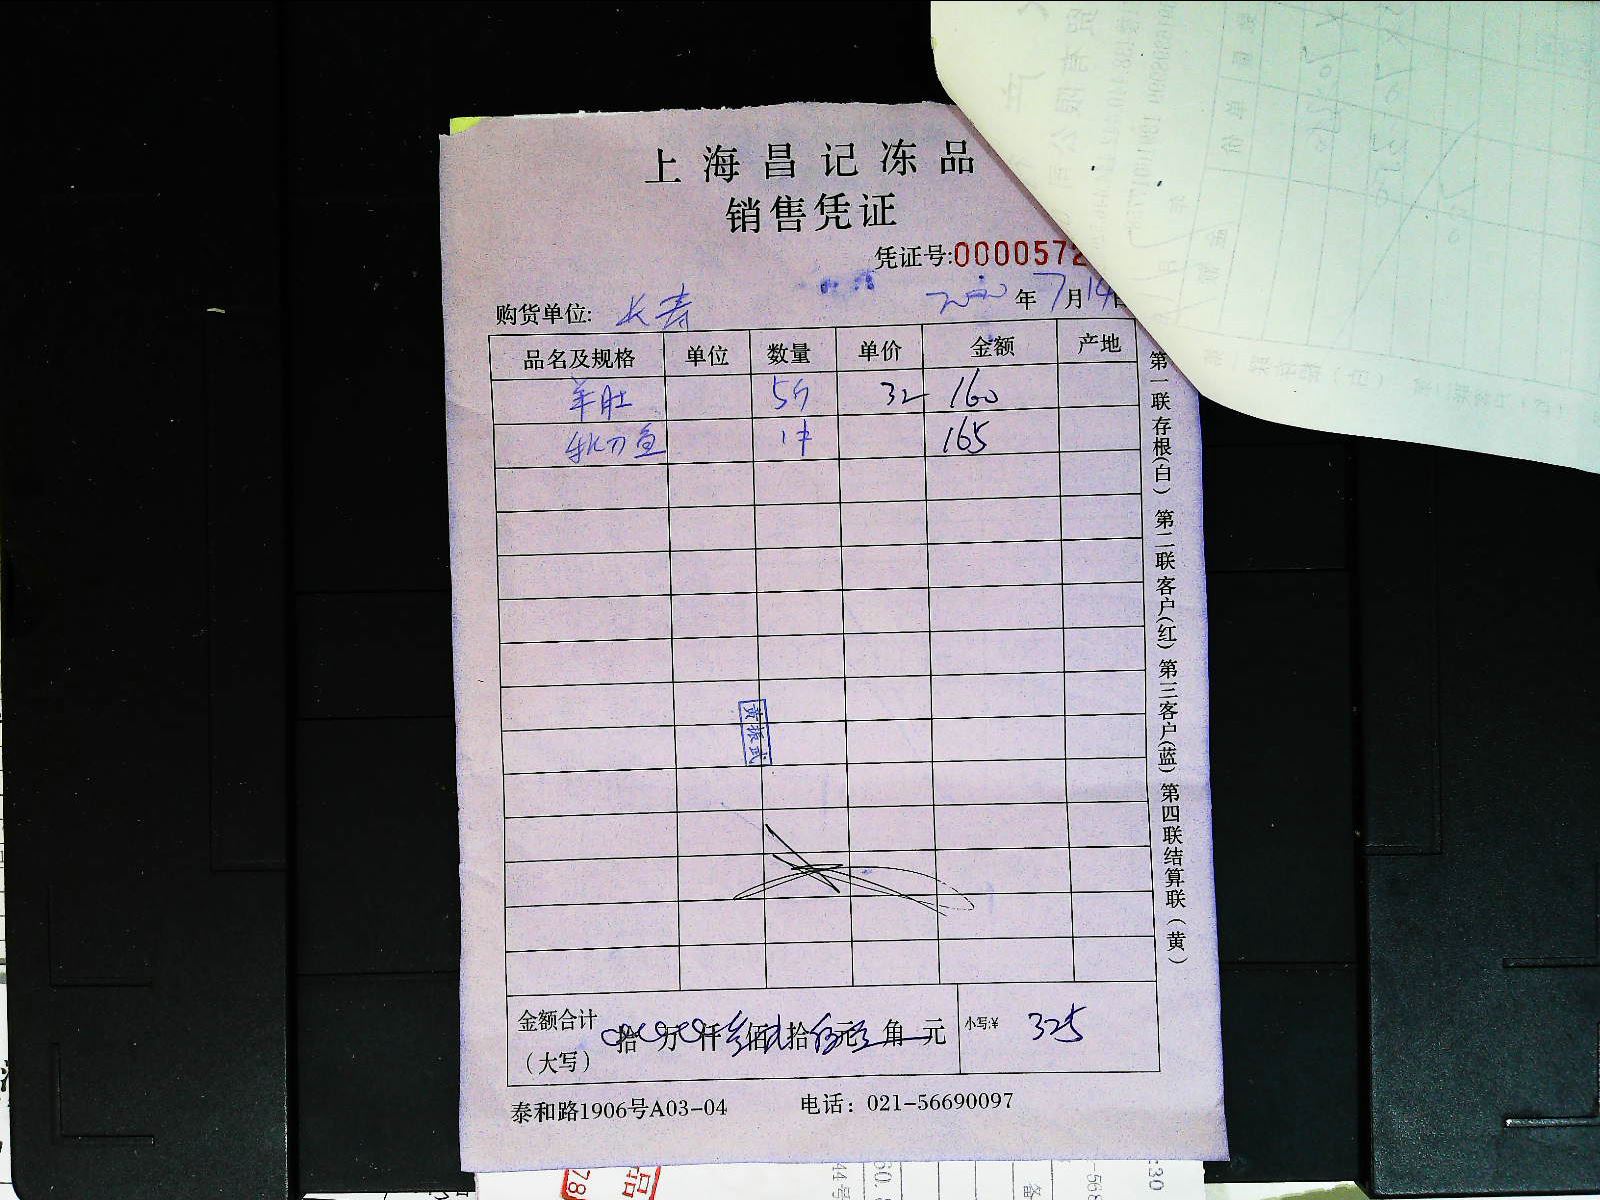 上海昌记冻品
销售凭证
凭证号:0000572
购货单位: 长寿 2020年7月14日
品名及规格 单位 数量 单价 金额 产地
羊肚 5斤 32 160
秋刀鱼 1件 165
黄振武
金额合计 拾 万 仟 叁佰贰拾伍元 角 元 小写:¥ 325
（大写）
泰和路1906号A03-04 电话：021-56690097
第一联存根(白) 第二联客户(红) 第三客户(蓝) 第四联结算联(黄)